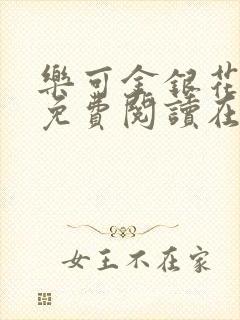 樂可金銀花
免費閱讀在
女王不在家